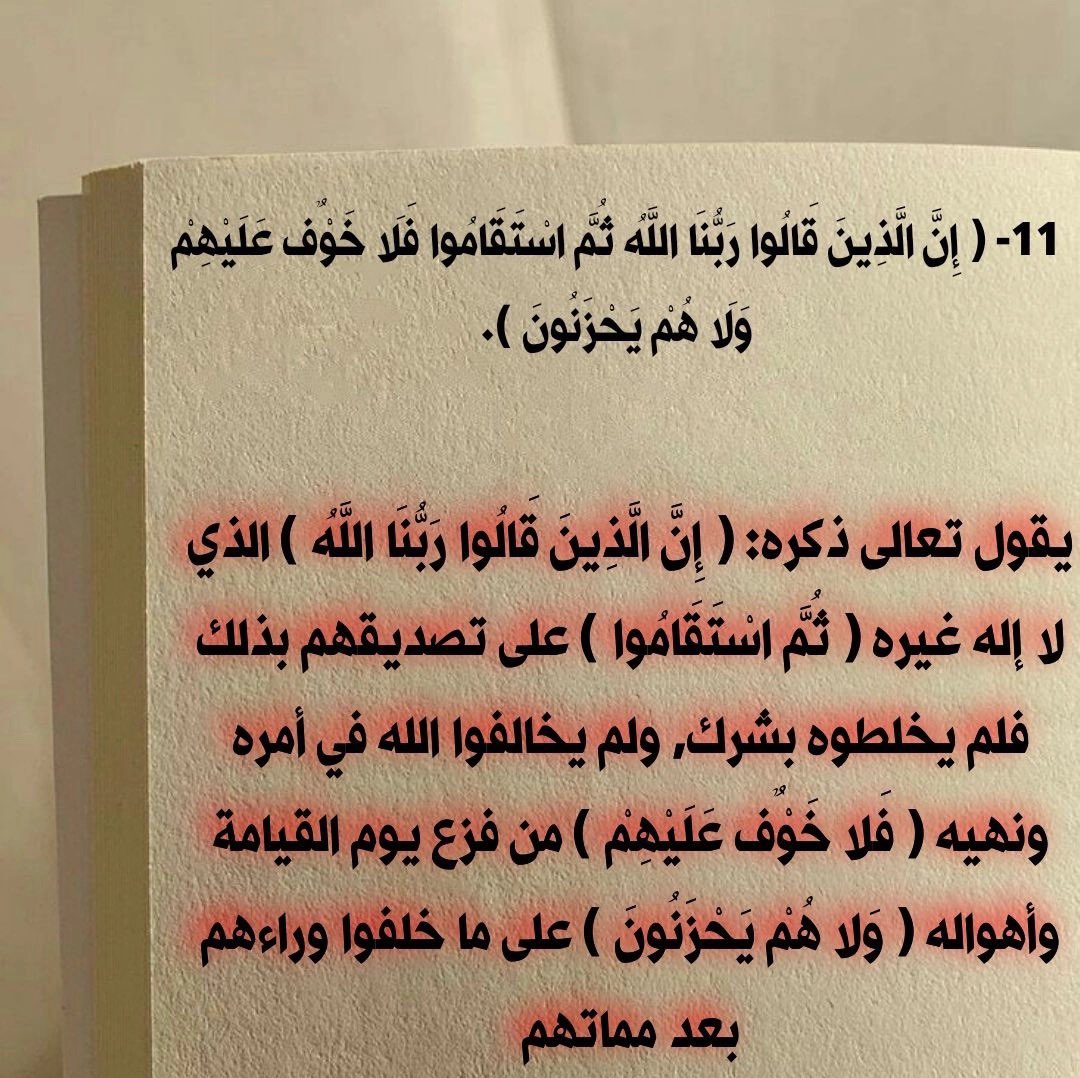 11- ( إِنَّ الَّذِينَ قَالُوا رَبُّنَا اللَّهُ ثُمَّ اسْتَقَامُوا فَلَا خَوْفٌ عَلَيْهِمْ
وَلَا هُمْ يَحْزَنُونَ ).
يقول تعالى ذكره: ( إِنَّ الَّذِينَ قَالُوا رَبُّنَا اللَّهُ ) الذي
لا إله غيره ( ثُمَّ اسْتَقَامُوا ) على تصديقهم بذلك
فلم يخلطوه بشرك, ولم يخالفوا الله في أمره
ونهيه ( فَلا خَوْفٌ عَلَيْهِمْ ) من فزع يوم القيامة
وأهواله ( وَلا هُمْ يَحْزَنُونَ ) على ما خلفوا وراءهم
بعد مماتهم